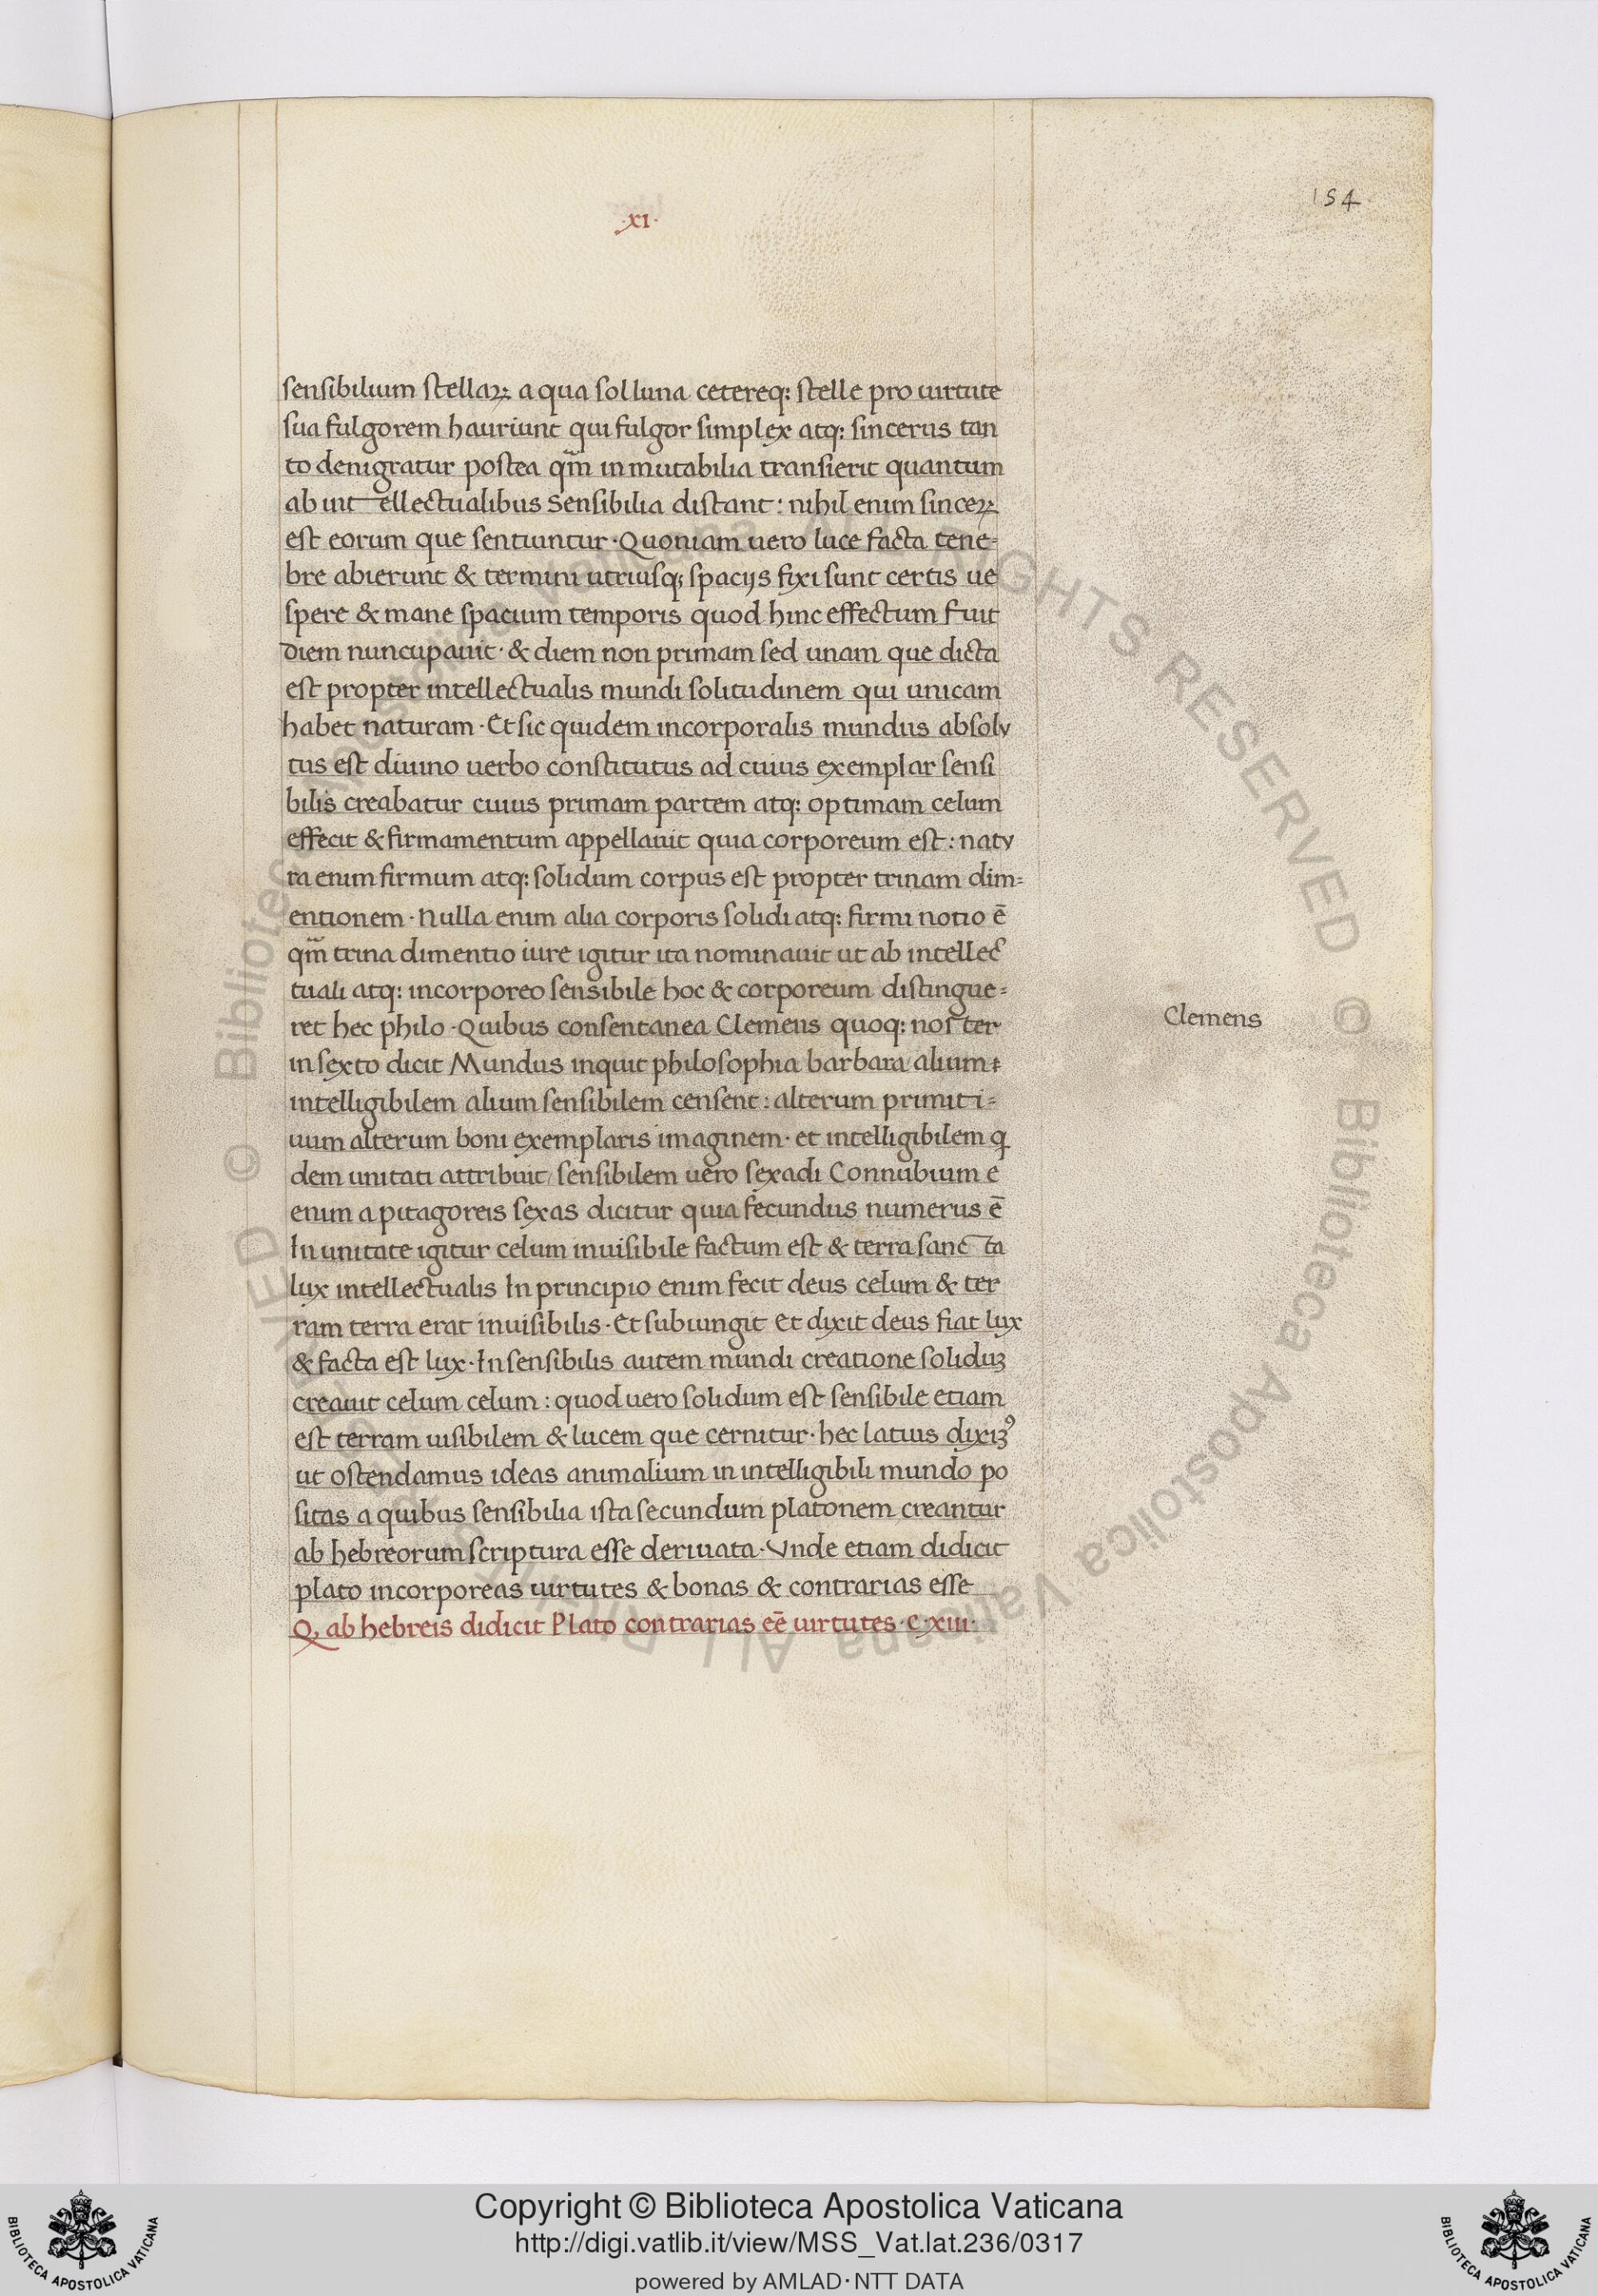 ·xi·
154
sensibilium stellaꝝ a qua sol luna cetereq; stelle pro uirtute
sua fulgorem hauriunt qui fulgor simplex atq; sincerus tan
to denigratur postea qm̄ in mutabilia transierit quantum
ab intellectualibus sensibilia distant : nihil enim sinceꝝ
est eorum que sentiuntur · Quoniam uero luce facta tene-
bre abierunt & termini utriusq; spacijs fixi sunt certis ue
spere & mane spacium temporis quod hinc effectum fuit
diem nuncupauit · & diem non primam sed unam que dicta
est propter intellectualis mundi solitudinem qui unicam
habet naturam · Et sic quidem incorporalis mundus absolv
tus est diuino uerbo constitutus ad cuius exemplar sensi
bilis creabatur cuius primam partem atq; optimam celum
effecit & firmamentum appellauit quia corporeum est : natv
ra enim firmum atq; solidum corpus est propter trinam dim-
entionem · Nulla enim alia corporis solidi atq; firmi notio ē
qm̄ trina dimentio iure igitur ita nominauit ut ab intellec
tuali atq; incorporeo sensibile hoc & corporeum distingue-
ret hec philo · Quibus consentanea Clemens quoq; noster
Clemens
in sexto dicit Mundus inquit philosophia barbara alium
intelligibilem alium sensibilem censent : alterum primiti-
uum alterum boni exemplaris imaginem · et intelligibilem q
dem unitati attribuit / sensibilem uero sexadi Connubium e
enim a pitagoreis sexas dicitur quia fecundus numerus ē
In unitate igitur celum inuisibile factum est & terra sancta
lux intellectualis In principio enim fecit deus celum & ter
ram terra erat inuisibilis · Et subiungit Et dixit deus fiat lux
& facta est lux · In sensibilis autem mundi creatione soliduꝫ
creauit celum celum : quod uero solidum est sensibile etiam
est terram uisibilem & lucem que cernitur · hec latius dixiꝫꝰ
ut ostendamus ideas animalium in intelligibili mundo po
sitas a quibus sensibilia ista secundum platonem creantur
ab hebreorum scriptura esse deriuata · Vnde etiam didicit
plato incorporeas uirtutes & bonas & contrarias esse
Q, ab hebreis didicit Plato contrarias eē uirtutes · C · xiii ·
© Biblioteca Apostolica Vaticana ALL RIGHTS RESERVED © Biblioteca Apostolica Vaticana ALL RIGHTS RESERVED
Copyright © Biblioteca Apostolica Vaticana
http://digi.vatlib.it/view/MSS_Vat.lat.236/0317
powered by AMLAD·NTT DATA
BIBLIOTECA APOSTOLICA VATICANA
BIBLIOTECA APOSTOLICA VATICANA